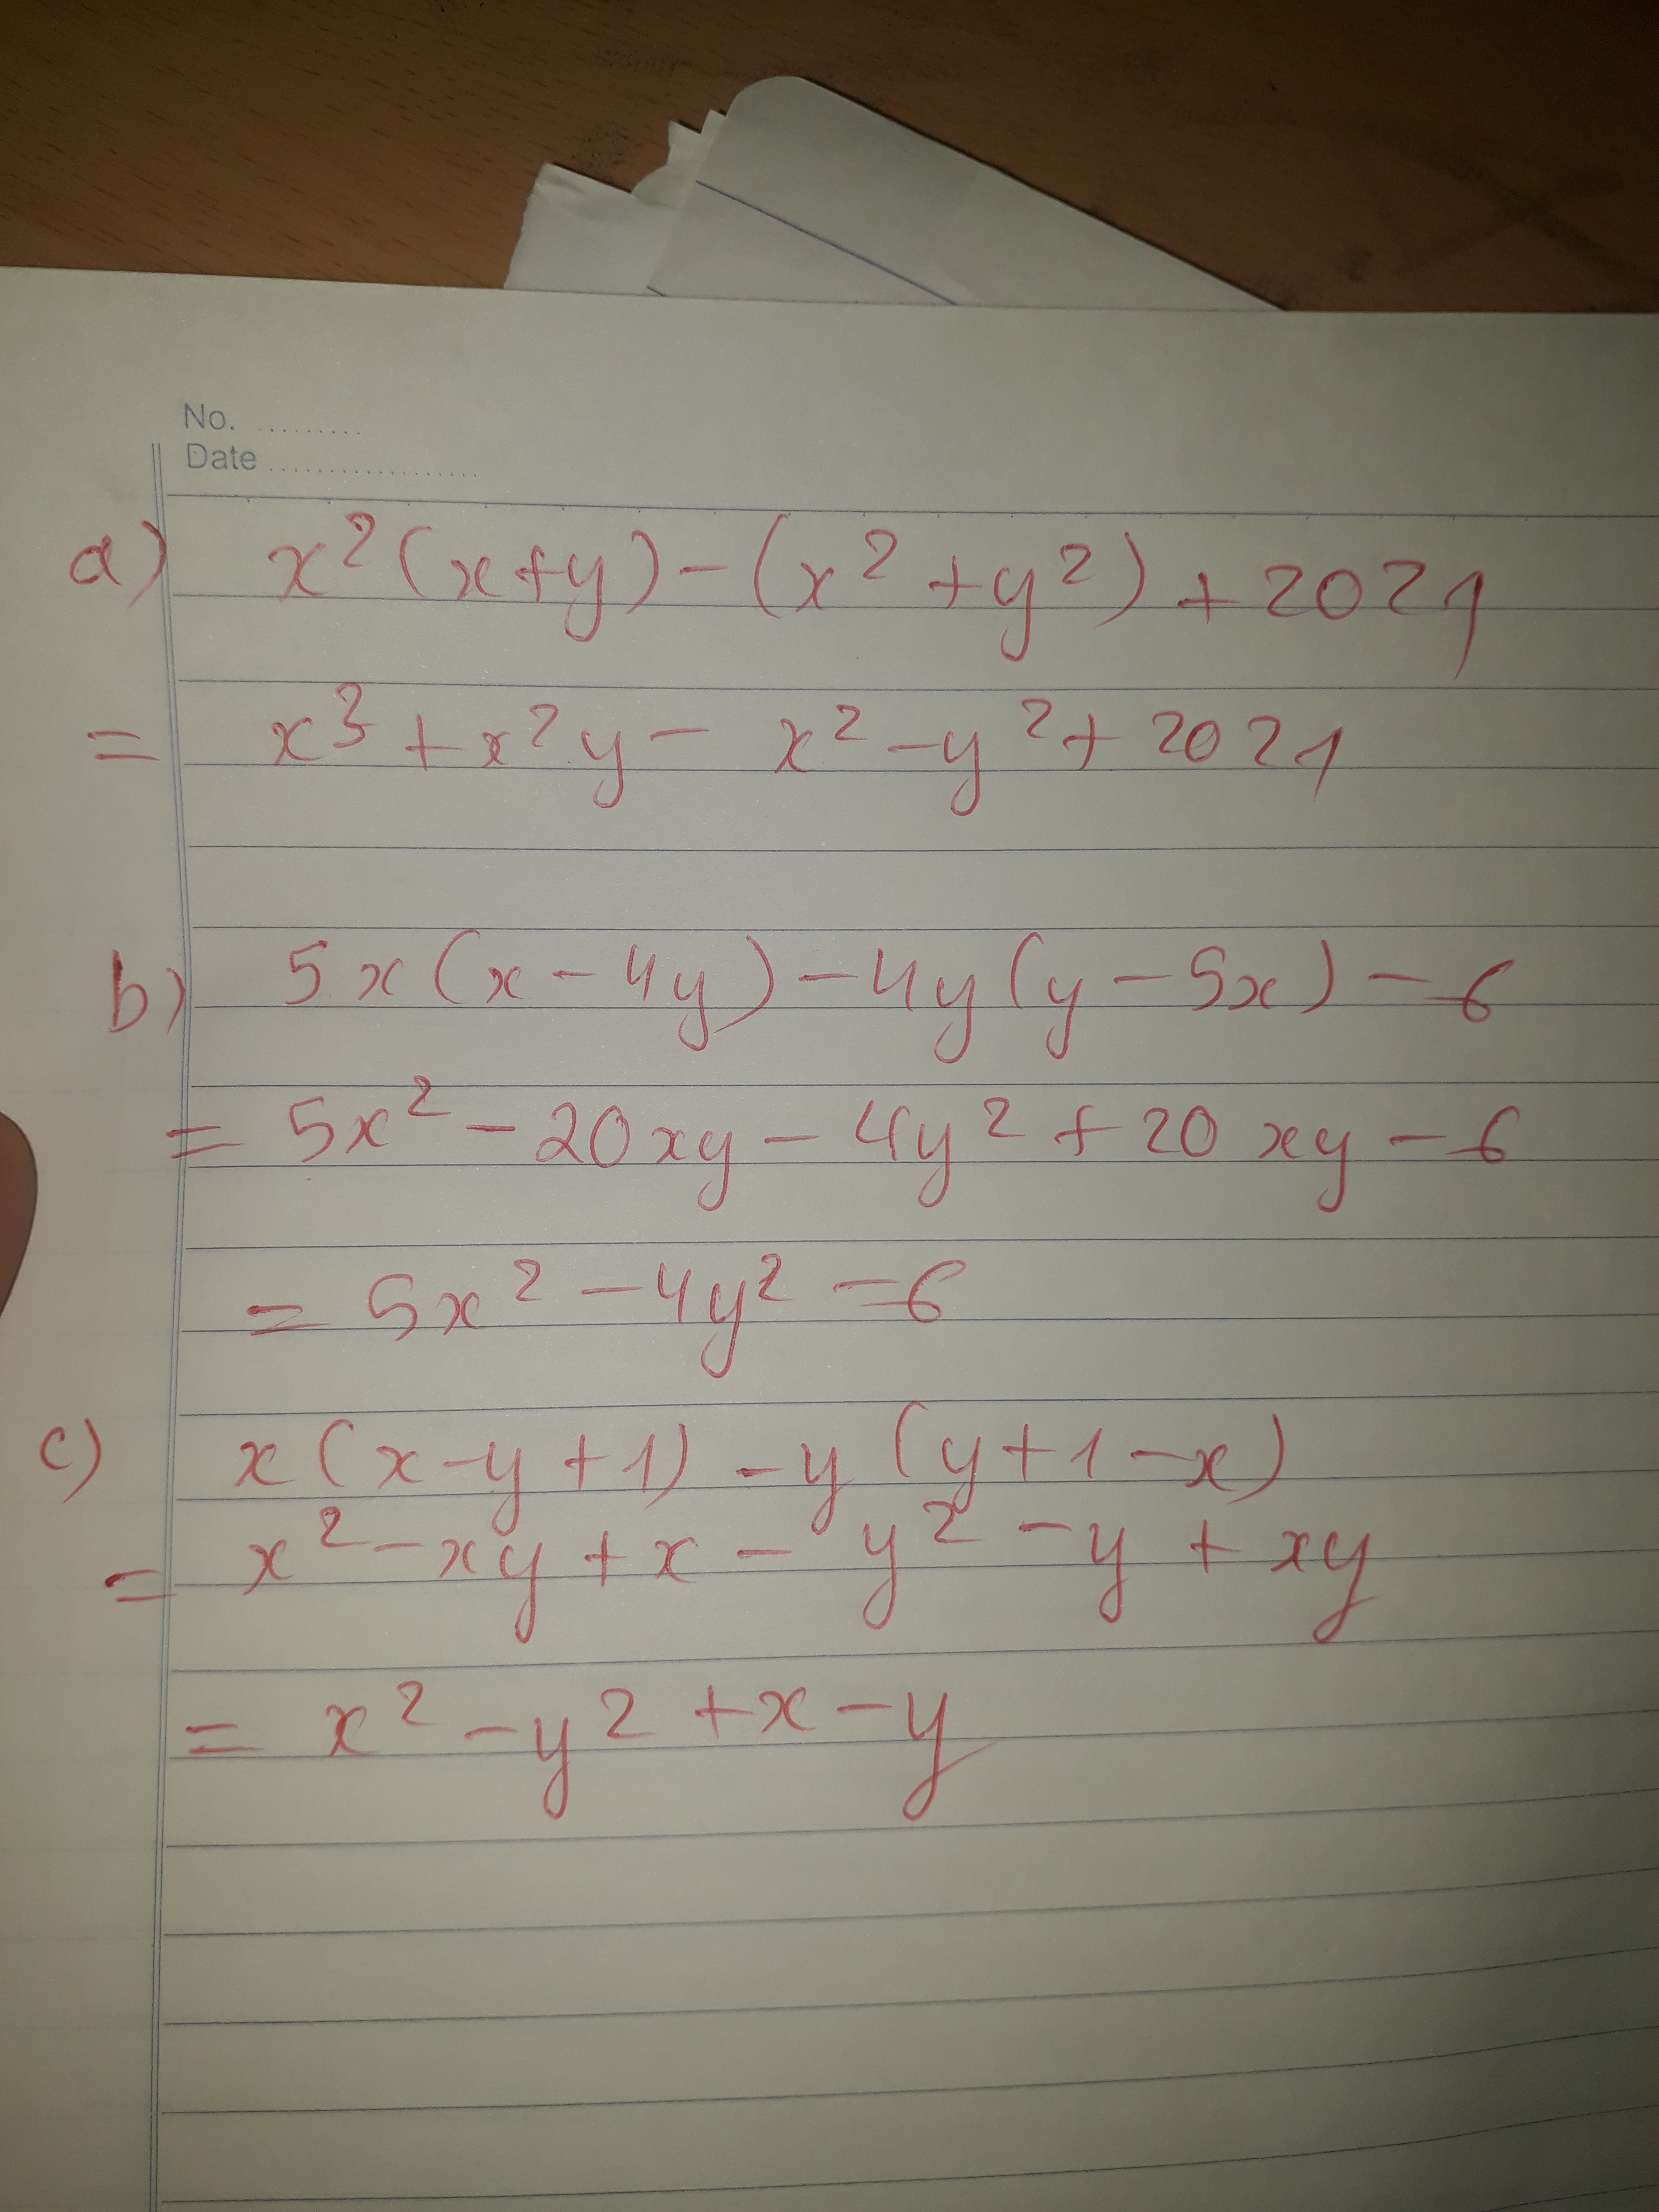 No. .........
Date ..................
a) x²(x+y)-(x²+y²)+2021
= x³+x²y-x²-y²+2021
b) 5x(x-4y)-4y(y-5x)-6
= 5x²-20xy-4y²+20xy-6
= 5x²-4y²-6
c) x(x-y+1)-y(y+1-x)
= x²-xy+x-y²-y+xy
= x²-y²+x-y